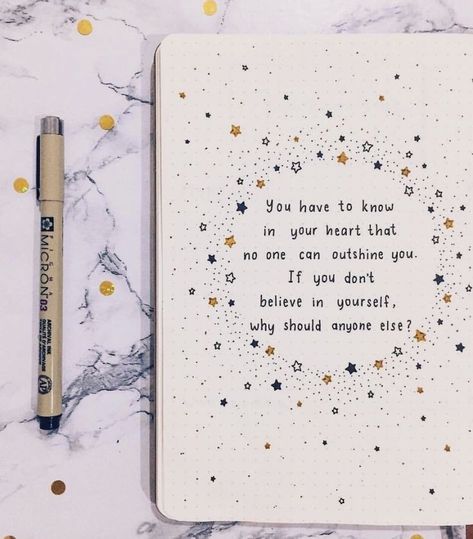 MICRON 03
ARCHIVAL INK
AP
You have to know
in your heart that
no one can outshine you.
If you don't
believe in yourself,
why should anyone else?